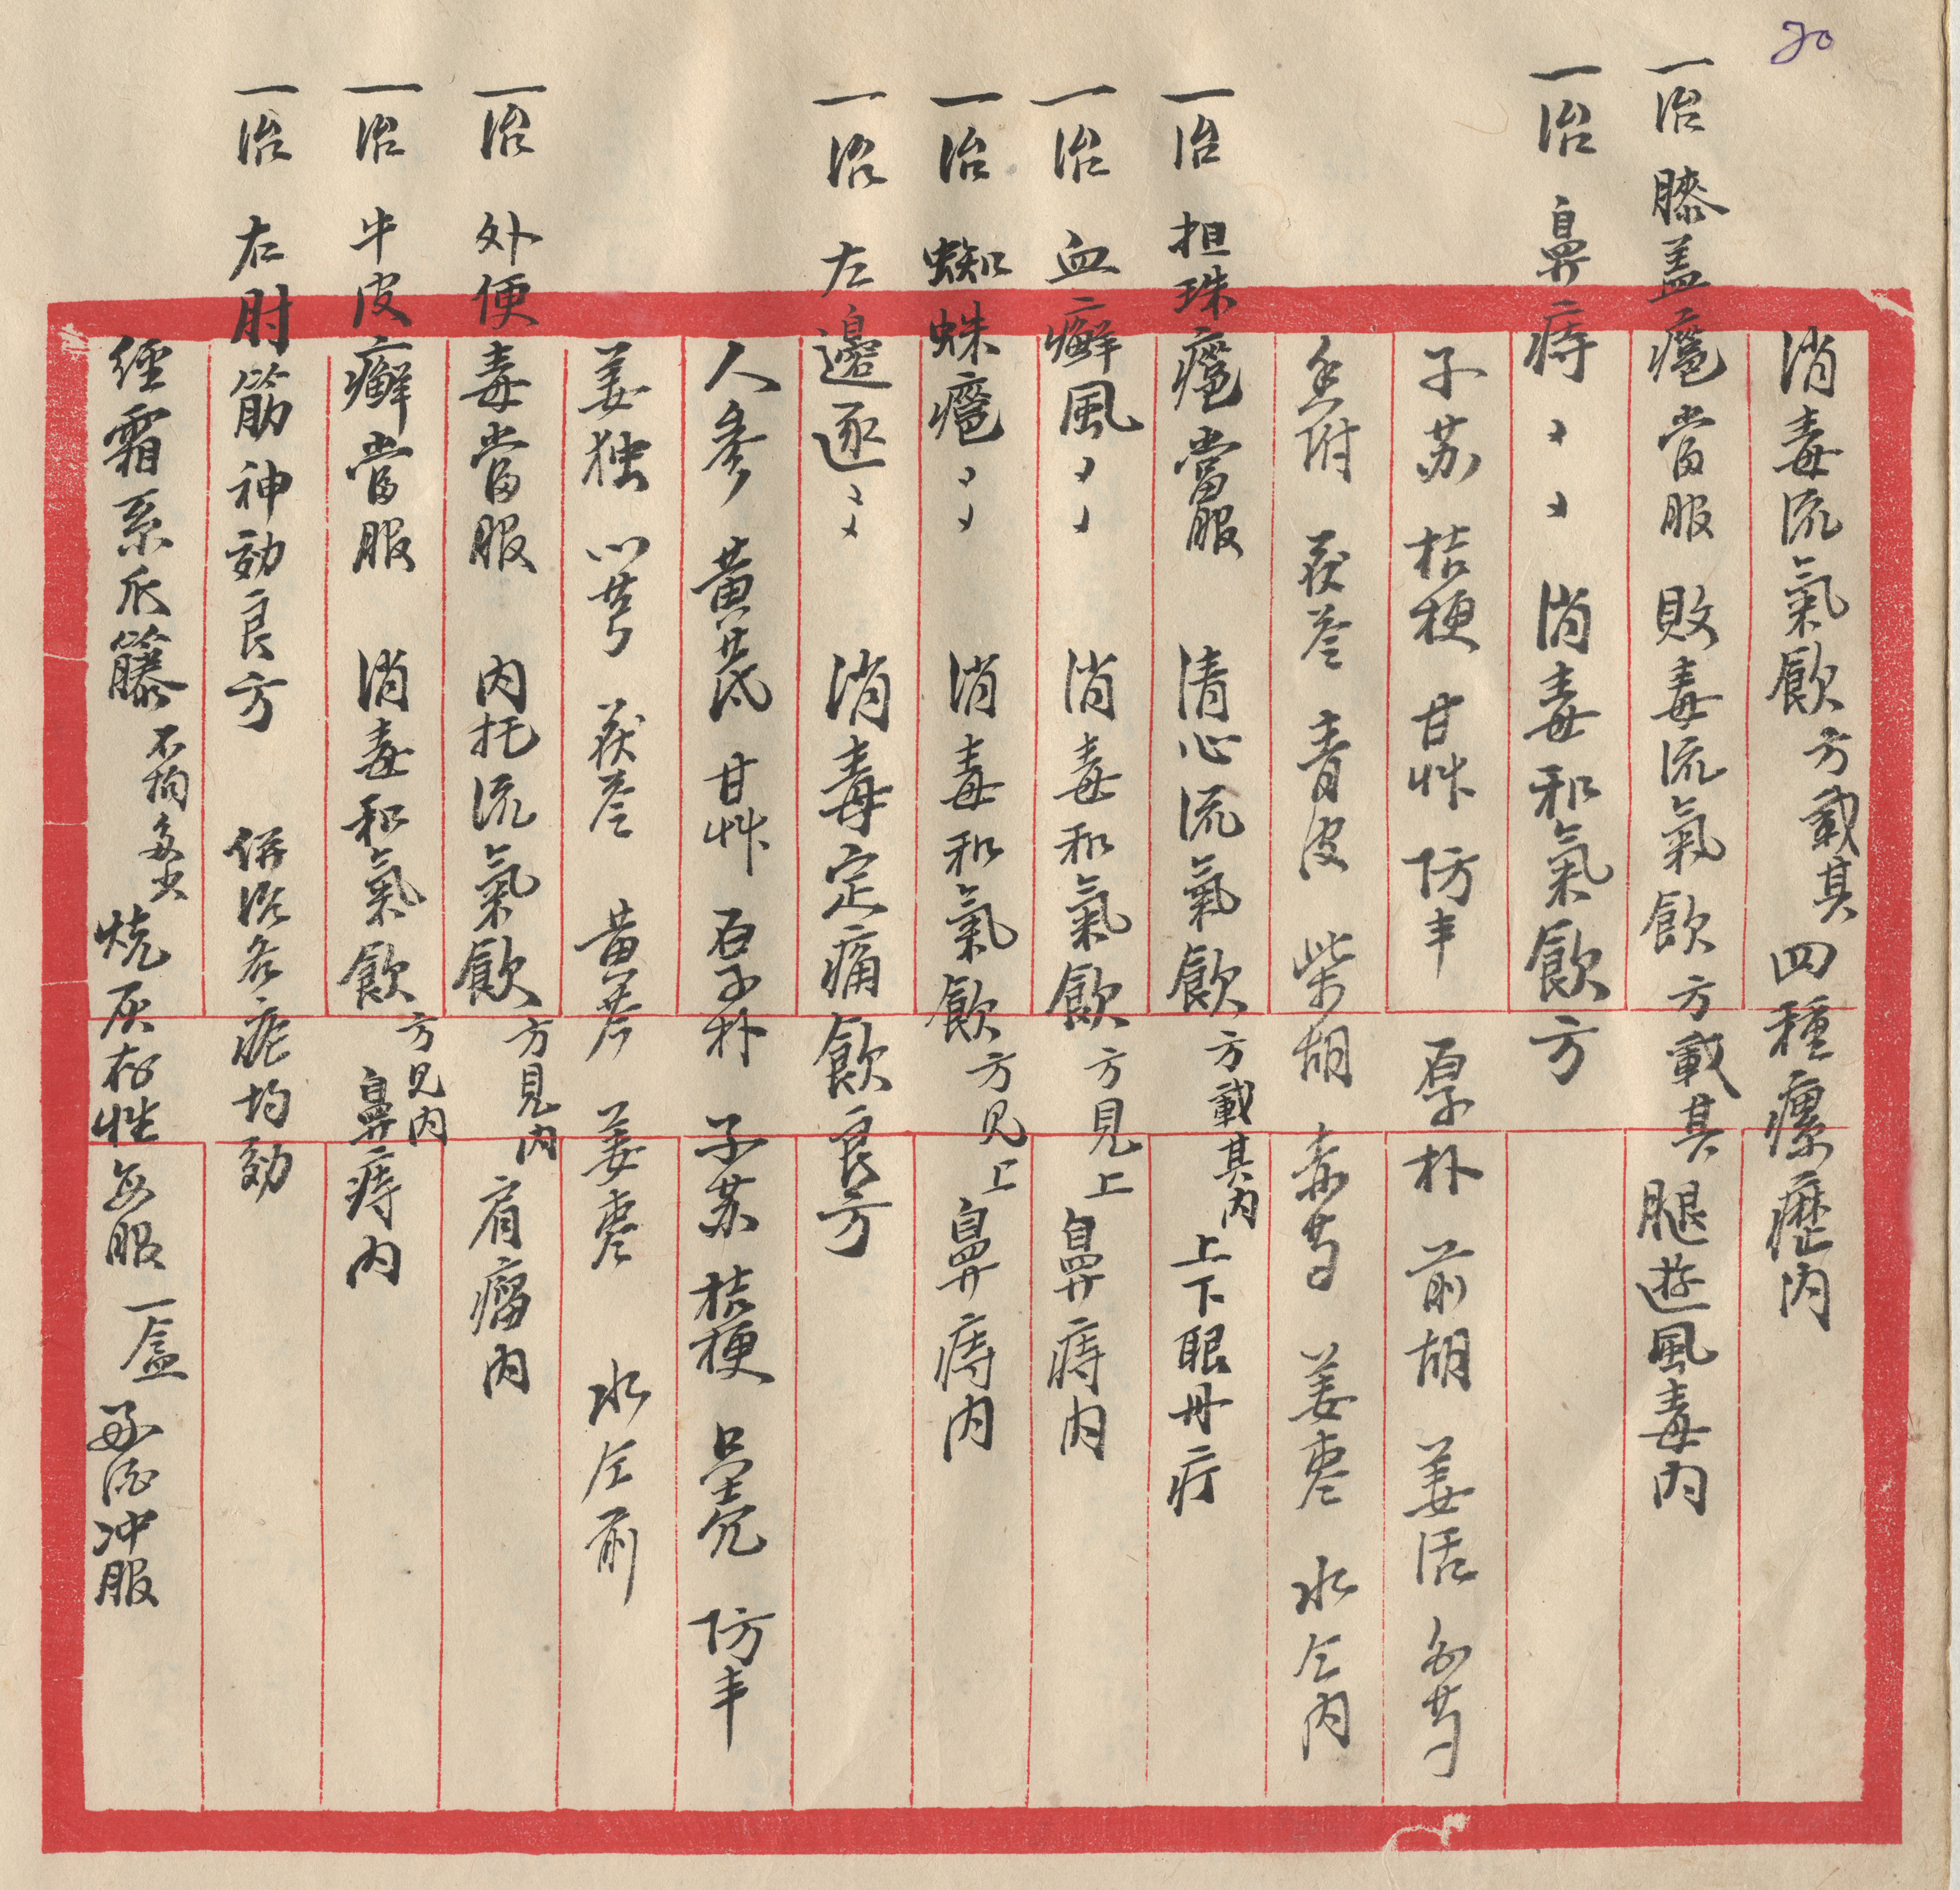 20
消毒流氣飲方載其四種瘰癧内
一治膝盖瘡當服敗毒流氣飲方載其腿遊風毒内
一治鼻痔〻〻消毒和氣飲方
子苏 桔梗 甘艸 防丰 厚朴 前胡 姜活 白芍
香附 茯苓 青皮 柴胡 赤芍 姜枣 水仝内
一治担珠瘡當服 清心流氣飲方載其内上下眼丹疔
一治血癬風〻〻 消毒和氣飲方見上鼻痔内
一治蜘蛛瘡〻〻 消毒和氣飲方见上鼻痔内
一治左邉逐〻〻 消毒定痛飲良方
人参 黄芪 甘艸 厚朴 子苏 桔梗 只壳 防丰
姜独 川芎 茯苓 黄芩 姜枣 水仝前
一治外便毒當服 内托流氣飲方見内肩瘤内
一治牛皮癬當服 消毒和氣飲方见内鼻痔内
一治右肘筋神効良方 併治各症均効
經霜系爪籐不拘多少烧灰存性每服一盏 酒冲服